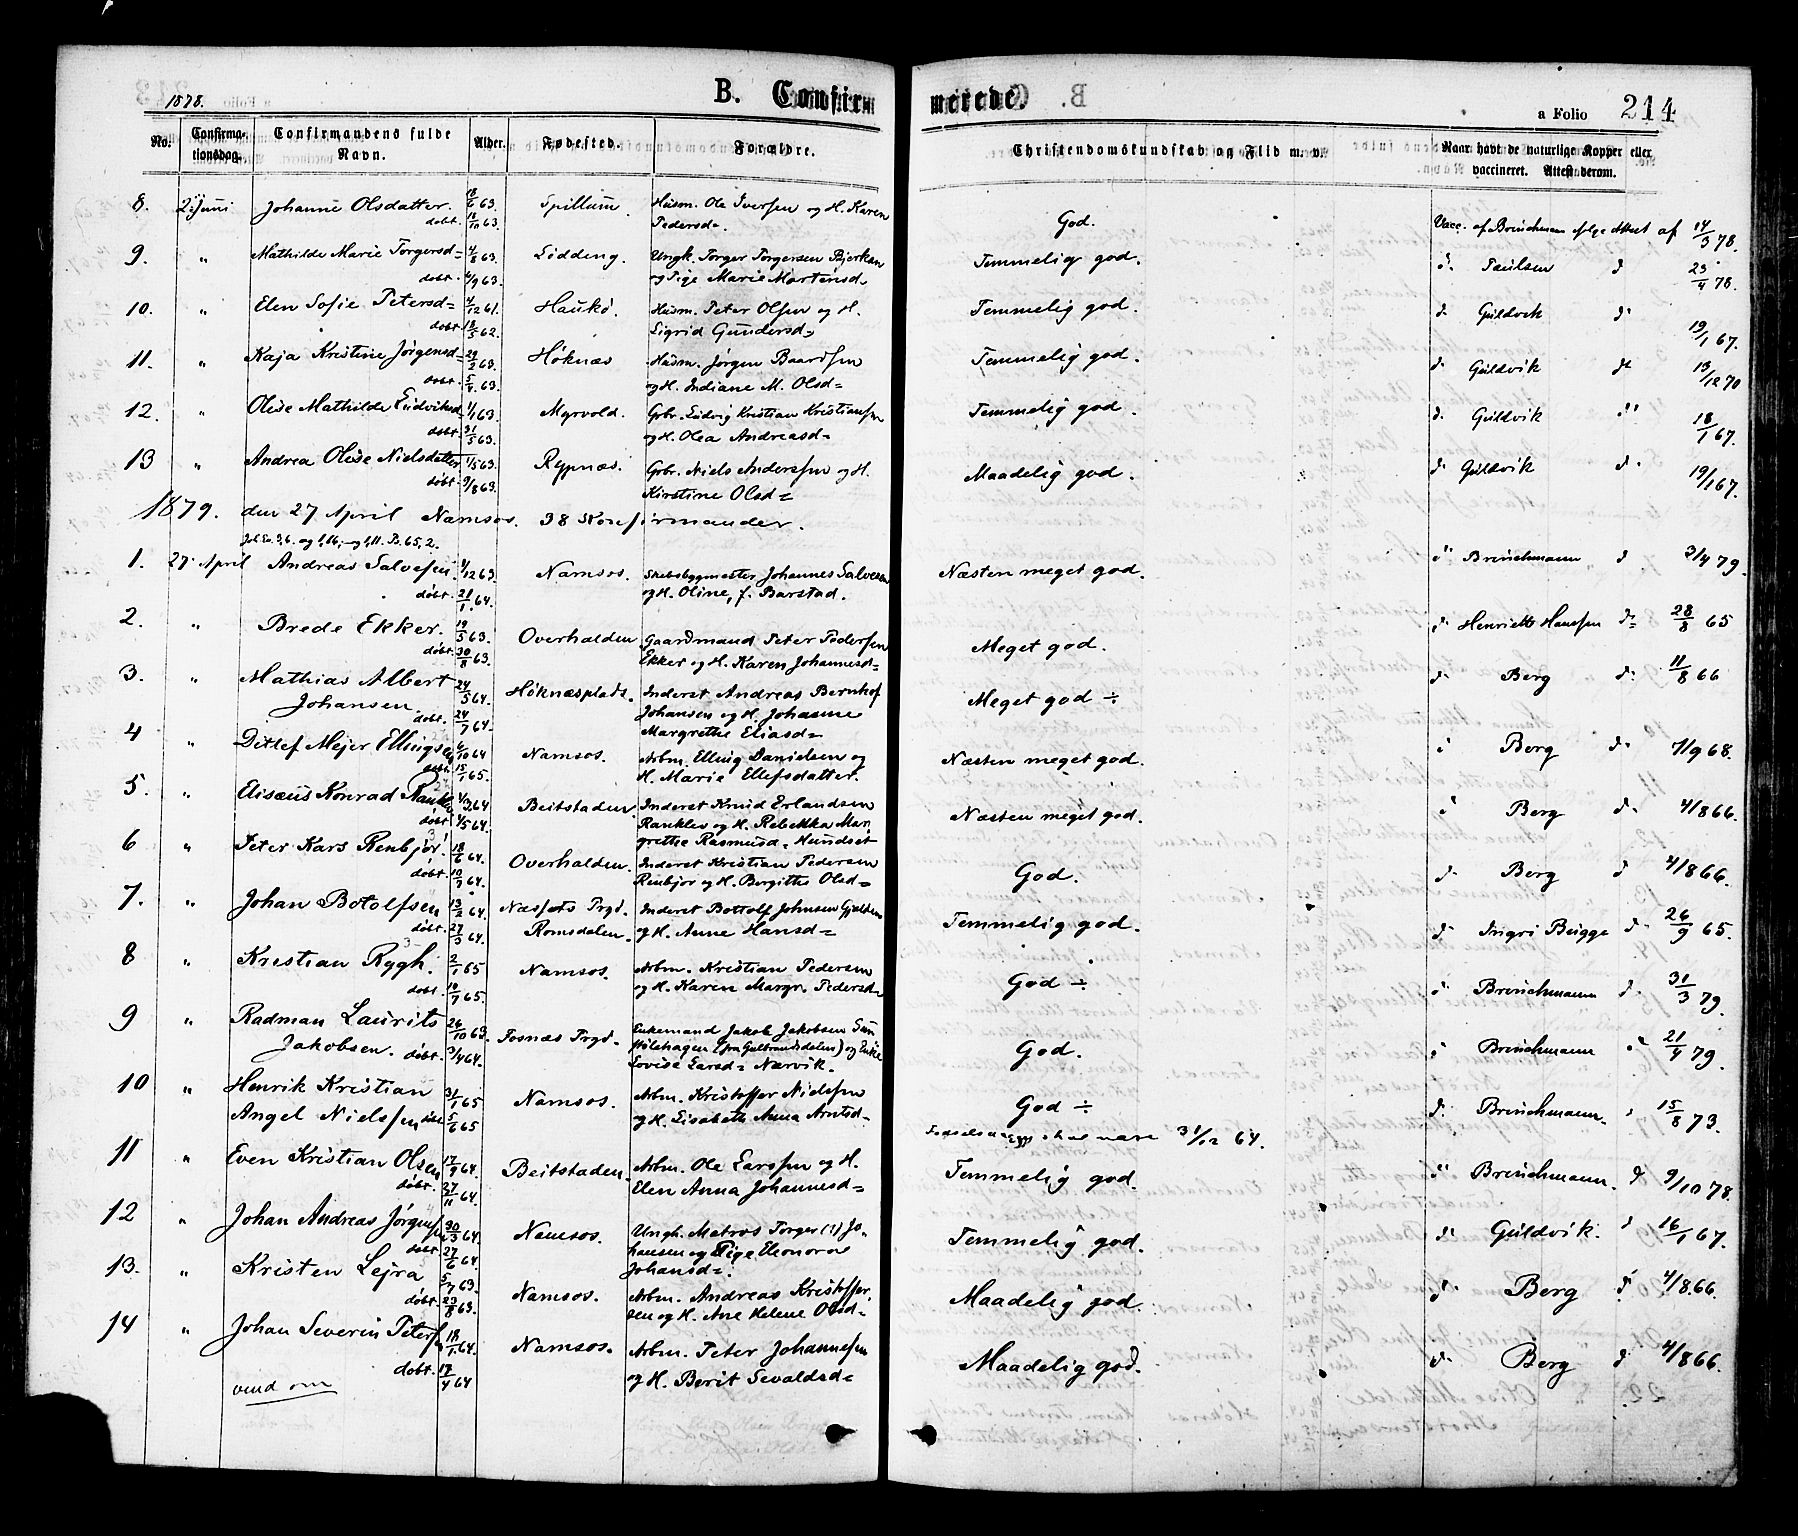 1878. B. Confirmerede. a Folio 214
No. Confirmationsdag. Confirmandens fulde Navn. Alder. Fødested. Forældre. Christendomskundskab og Flid m. v. Naar havt de naturlige Kopper eller vaccineret. Attest derom.
8. 2. Juni Johanne Olsdatter. 18/6 63. Spillum. Husm. Ole Iversen og H. Karen God. Vacc. af Brinchmann ifølge Attest af 14/3 78.
døbt. 18/10 63. Pedersd=.
9. " Mathilde Marie Torgersd= 4/8 63. Lødding. Ungk. Torger Torgersen Bjerkan Temmelig god. d. Paulsen d 23/4 78.
døbt. 4/9 63. og Pige Marie Martensd.
10. " Elen Sofie Petersd= 4/12 61. Haukø. Husm. Peter Olsen og H. Temmelig god. d. Guldvik d. 19/1 67.
døbt. 18/5 62. Sigrid Gundersd=
11. " Kaja Kristine Jørgensd= 22/2 63. Høknæs Husm. Jørgen Baardsen Temmelig god. d. Guldvik d. 13/12 70
døbt. 5/4 63. og H. Indiane M. Olsd=
12. " Olise Mathilde Ludviksd= 1/1 63. Myrvold. Grbr. Ludvig Kristian Kristiansen Temmelig god. d. Guldvik d. 18/1 67.
døbt. 31/5 63. og H. Olea Andreasd=
13 " Andrea Olise Nielsdatter 1/5 63. Rypnæs. Grbr. Niels Andersen og H. Maadelig god. d. Guldvik d. 19/1 67.
døbt. 9/8 63. Kirstine Olsd=
1879. den 27 April Namsos. 38 Konfirmander.
Joh. Ev. 9,6. og 1,16,- og 1,11. Ps. 65,2.
1. 27. April Andreas Salvesen. 4/12 63. Namsos. Skibsbygmester Johannes Salvesen Næsten meget god. d. Brinchmann d. 3/4 79.
døbt. 21/1 64. og H. Oline, f. Barstad.
2. " Brede Ekker. 19/5 63. Overhalden Gaardmand Peter Pedersen Meget god. d. Henriette Hansen d= 28/8 65
døbt. 30/8 63. Ekker og H. Karen Johannesd=
3. " Mathias Albert 24/5 64. Høknæsplads. Inderst Andreas Bernhof Meget god ÷ d. Berg d. 11/8 66
Johansen. døbt. 24/7 64. Johansen og H. Johanne
Margrethe Eliasd=
4 " Ditlef Mejer Ellingsen 6/10 64 Namsos. Arbm. Elling Danielsen og Næsten meget god. d. Berg d. 7/9 68.
døbt. 15/1 65. H. Maria Ellefsdatter.
5. " Elisæus Konrad Ranklev 4/3 64 Beitstaden. Inderst Knud Erlandsen Næsten meget god. d. Berg d. 4/8 66.
døbt. 4/5 64. Ranklev og H. Rebekka Mar-
grethe Rasmusd= Hundset
6 " Peter Kars Renbjør. 18/6 64. Overhalden. Inderst Kristian Pedersen God. d. Berg d 4/8 66.
døbt. 10/7 64. Renbjør og H. Bergitte Olsd=
7. " Johan Botolfsen 13/2 64. Næssets Prgd. Inderst Bottolf Johnsen Temmelig god. d. Ingri Bugge d. 26/9 65.
døbt. 27/3 64. Romsdalen. og H. Anne Hansd=
8 " Kristian Rygh. 2/1 65 Namsos. Arbm. Kristian Pedersen God ÷ d. Brinchmann d. 31/3 79.
døbt. 10/7 65. og H. Karen Margr. Pedersd=
9 " Radman Laurits 26/10 63. Fosnæs Prgd. Enkemand Jakob Jakobsen God. d. Brinchmann d. 21/4 79.
Jakobsen. døbt. 3/4 64. (fra Gulbrandsdalen) og Enke
Lovise Larsd= Nærvik.
10 " Henrik Kristian 31/1 65 Namsos. Arbm. Kristoffer Nielssen God ÷ d. Brinchmann. 15/8 73.
Angel Nielssen døbt 5/6 65 og H. Lisabeth Anna Arntsd= skal være 31/12 64.
11 " Even Kristian Olsen 17/9 64. Beitstaden. Arbm. Ole Larssen og H. Temmelig god. d. Brinchmann. d 9/10 78.
døbt. 27/11 64. Elen Anna Johannesd=
12 " Johan Andreas Jørgens. 30/3 64. Namsos. Ungk. Matros Torger (!) Jo- Temmelig god. d. Guldvik. d 16/1 67.
døbt 27/6 64. hansen og Pige Elenora
Johansd=.
13. " Kristen Lejra 5/7 63. Namsos. Arbm. Andreas Kristoffer- Maadelig god. d. Berg d. 4/8 66.
døbt. 23/8 63. sen og H. Ane Helene Olsd=
14 " Johan Severin Peters. 18/1 64. Namsos. Arbm. Peter Johannesen Maadelig god. d. Berg d 4/8 66.
døbt. 17/4 64 og H. Berit Sevaldsd=
vend om